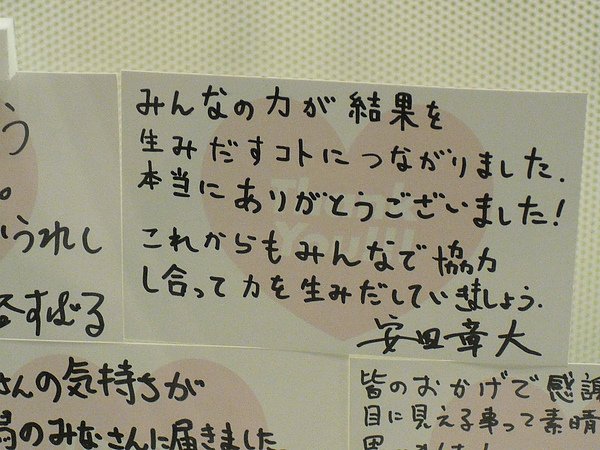 みんなの力が結果を
生みだすコトにつながりました.
本当にありがとうございました!
これからもみんなで協力
し合って力を生みだしていきましょう.
安田章大
う
。
うれし
すばる
さんの気持ちが
のみなさんに届きました
皆のおかげで感謝
目に見える事って素晴
Thank
You!!!